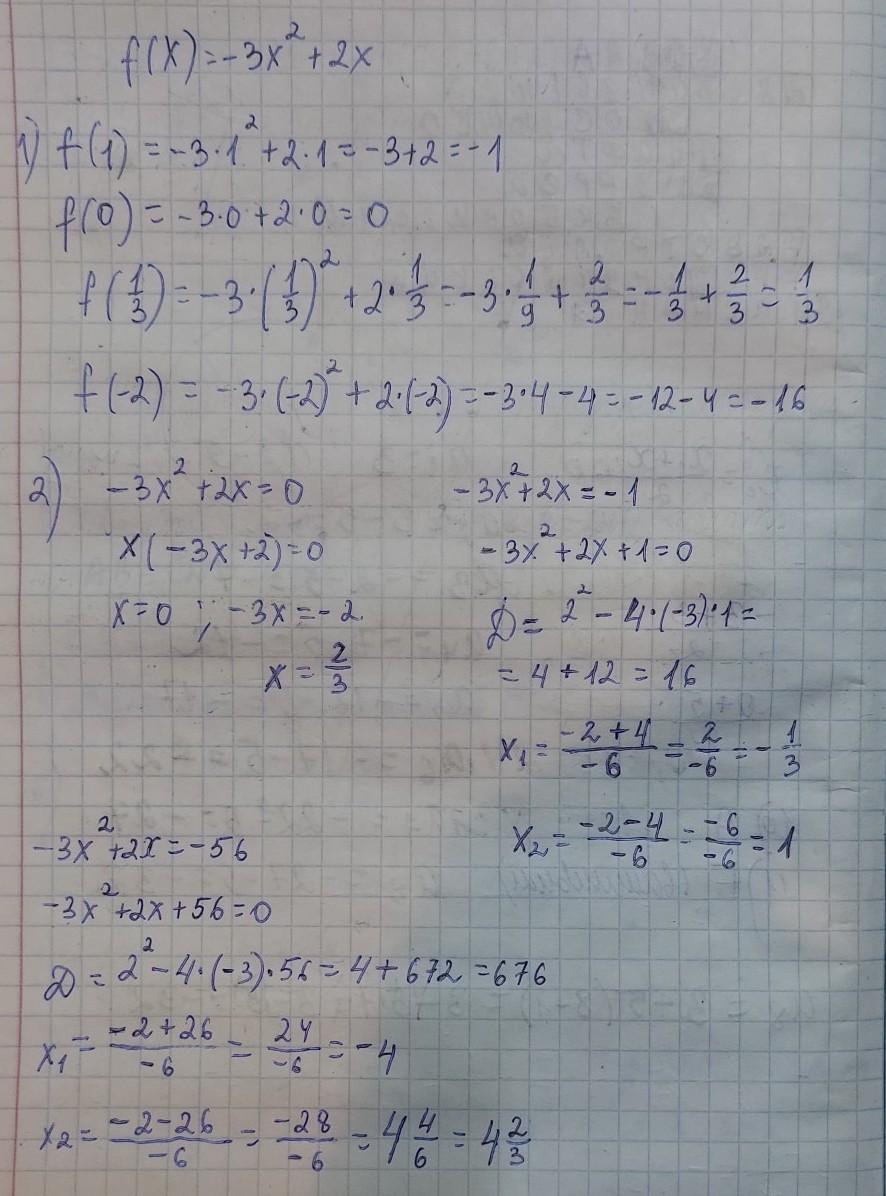 f(x) = -3x² + 2x
1) f(1) = -3·1² + 2·1 = -3+2 = -1
f(0) = -3·0 + 2·0 = 0
f(1/3) = -3·(1/3)² + 2·1/3 = -3·1/9 + 2/3 = -1/3 + 2/3 = 1/3
f(-2) = -3·(-2)² + 2·(-2) = -3·4 - 4 = -12 - 4 = -16
2) -3x² + 2x = 0
x(-3x+2) = 0
x = 0 ; -3x = -2
x = 2/3
-3x² + 2x = -1
-3x² + 2x + 1 = 0
D = 2² - 4·(-3)·1 =
= 4 + 12 = 16
x₁ = (-2+4)/(-6) = 2/(-6) = -1/3
x₂ = (-2-4)/(-6) = (-6)/(-6) = 1
-3x² + 2x = -56
-3x² + 2x + 56 = 0
D = 2² - 4·(-3)·56 = 4 + 672 = 676
x₁ = (-2+26)/(-6) = 24/(-6) = -4
x₂ = (-2-26)/(-6) = (-28)/(-6) = 4 4/6 = 4 2/3